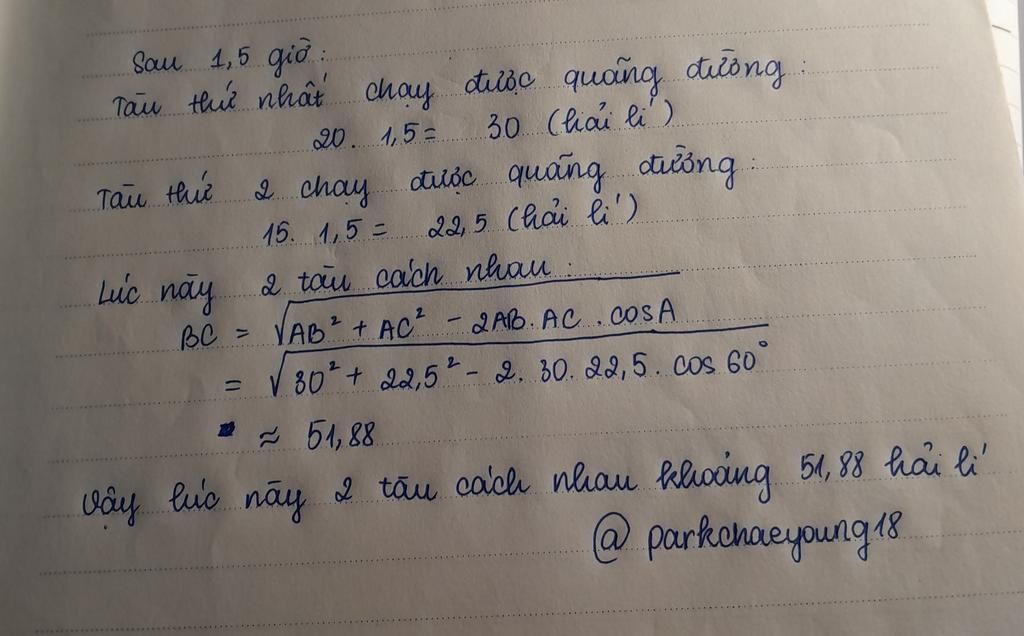 Sau 1,5 giờ:
Tàu thứ nhất chạy được quãng đường:
20. 1,5 = 30 (hải lí)
Tàu thứ 2 chạy được quãng đường:
15. 1,5 = 22,5 (hải lí)
Lúc này 2 tàu cách nhau:
BC = √AB² + AC² - 2AB.AC.cosA
= √30² + 22,5² - 2.30.22,5.cos 60°
≈ 51,88
Vậy lúc này 2 tàu cách nhau khoảng 51,88 hải lí
@ parkchaeyoung18